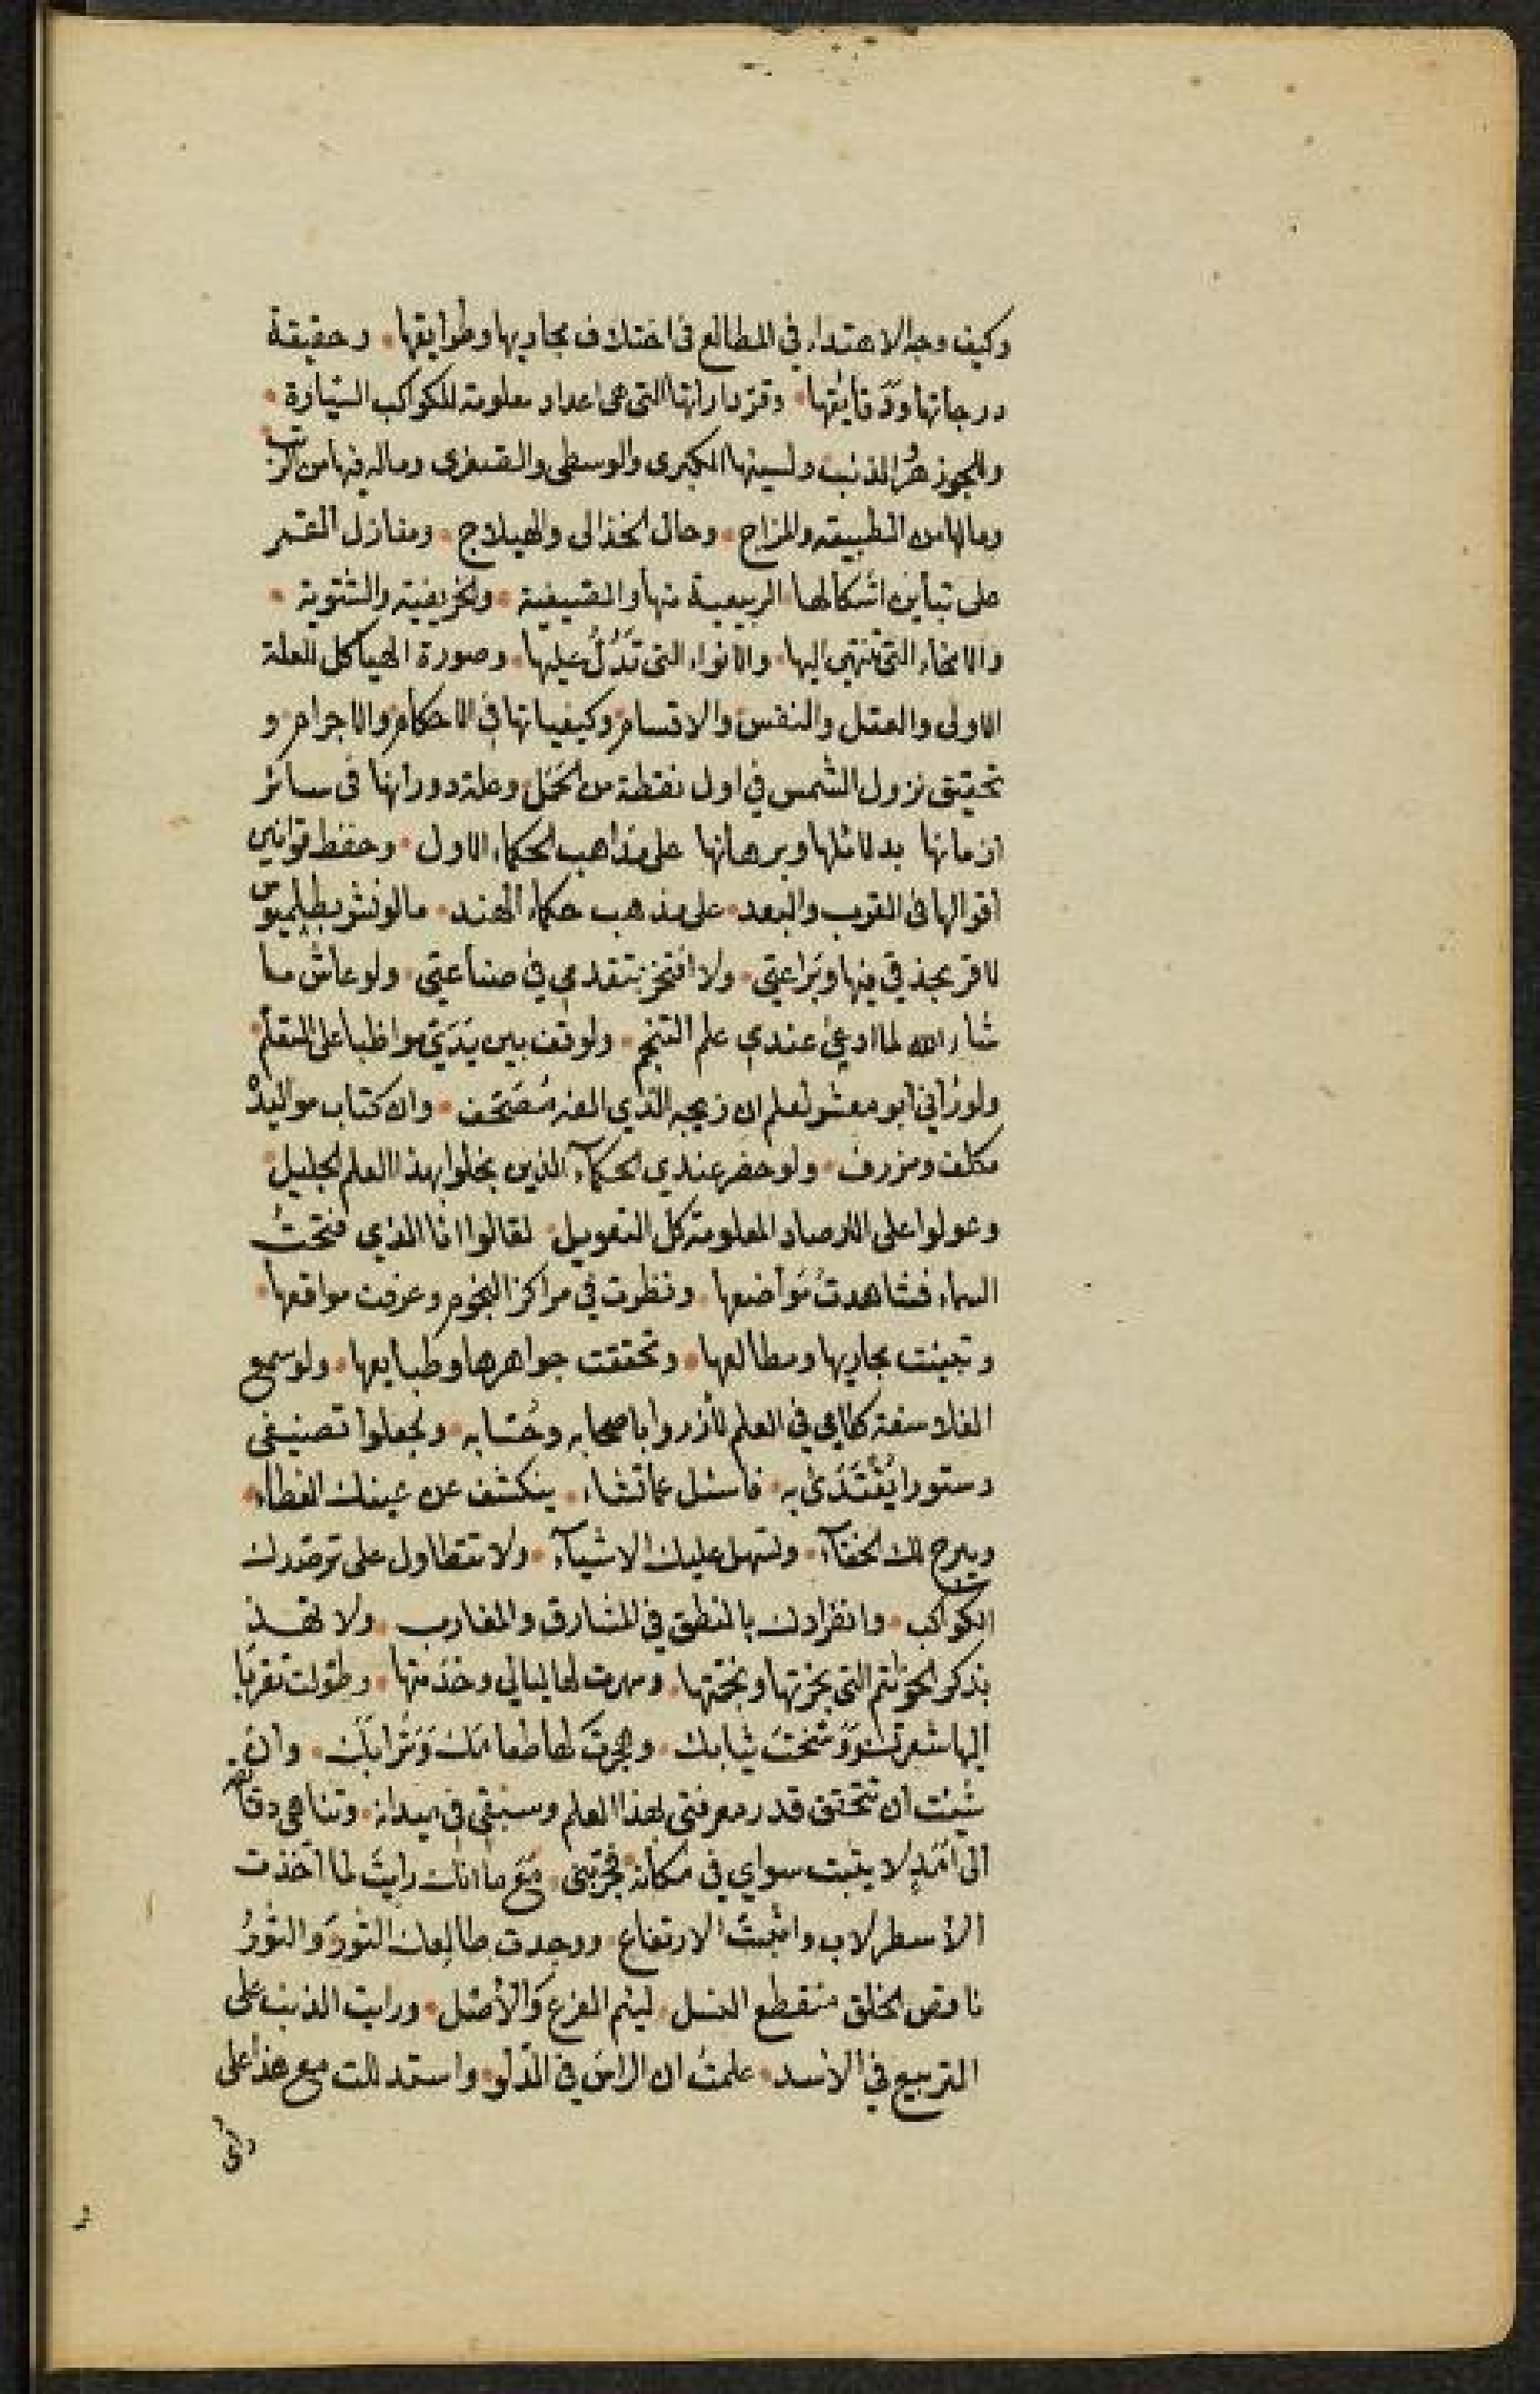 وكيف وجه الاهتداء في المطالع في اختلاف مجاريها وطرايقها . وحقيقة
درجاتها ودَقايقها . وفرداراتها التي هي اعداد معلومة للكواكب السيّارة .
والجوزهر والذنب ولسنيها الكبرى والوسطى والصغرى وماله فيها من الرتب
ومالها من الطبيعه والمزاج . وحال الكذالى والهيلاج . ومنازل القمر
على تباين اشكالها الربيعية منها والصيفية . والخريفية والشتوية .
والانحاء التي تنتهي اليها . والانواء التي تَدُلُّ عليها . وصورة الهياكل للعلة
الاولى والعقل والنفس والاقسام وكيفياتها في الاحكام والاجرام و
تحقيق نزول الشمس في اول نقطة من الحَمَل وعلة دورانها في سائر
ازمانها بدلائلها وبرهانها على مذاهب الحكماء الاول . وحفظ قوانين
اقوالها في القرب والبعد . على مذهب حكماء الهند . مالو نشر بطلميوس
لاقر بحذقي فيها وبَراعتي . ولا افتخر بتقدمي في صناعتي . ولو عاش ما
شاء الله لما ادعى عندي علم التنجم . ولوقف بين يَدَيّ مواظبا على التعلم .
ولو رآني ابو معشر لعلم ان زيجه الذي الفه مُصَحّف . وان كتاب مواليده
مكلف ومزرف . ولو حضر عندي الحكمآء الذين بخلوا بهذا العلم الجليل .
وعولوا على الارصاد المعلومة كل التعويل . لقالوا انا الذي فتحتُ
السماء فشاهدتُ مَواضعها . ونظرت في مراكز النجوم وعرفت مواقعها .
وتبينت مجاريها ومطالعها . وتحققت جواهرها وطبايعها . ولو سمع
الفلاسفة كلامي في العلم لأزروا باصحابه وحُسّابه . ولجعلوا تصنيفي
دستورا يُقْتَدَىٰ به . فاسئل عمّا تشاء . ينكشف عن عينك الغطاء .
ويبرح لك الخفاء . وتسهل عليك الاشيآء . ولا تتطاول على ترصدك
الكواكب . وانفرادك بالمنطق في المشارق والمغارب . ولا تهذ
بذكر الخواتم التي بخرتها وبختها . وسهرت لها ليالي وخدمتها . وطولت تقربا
اليها شعرك وَوَسَّختَ ثيابك . وهجرتَ لها طعامك وَشَرابَك . وان
شئت ان تتحقق قدر معرفتي بهذا العلم وسبقي في ميدانه . وتناهى دقائقه
الى امَدٍ لا يثبت سواي في مكانه فجرّبني . مَعَ ما انك رايتَ لما اخذت
الأسطرلاب واثبتّ الارتفاع . ووجدت طالعك الثورَ والثورُ
ناقص الخلق منقطع النسل . ليئم الفرع وَالأصل . ورايت الذنب على
التربيع في الاسد . علمتُ ان الراسَ في الدّلو . واستدللت مع هذا على